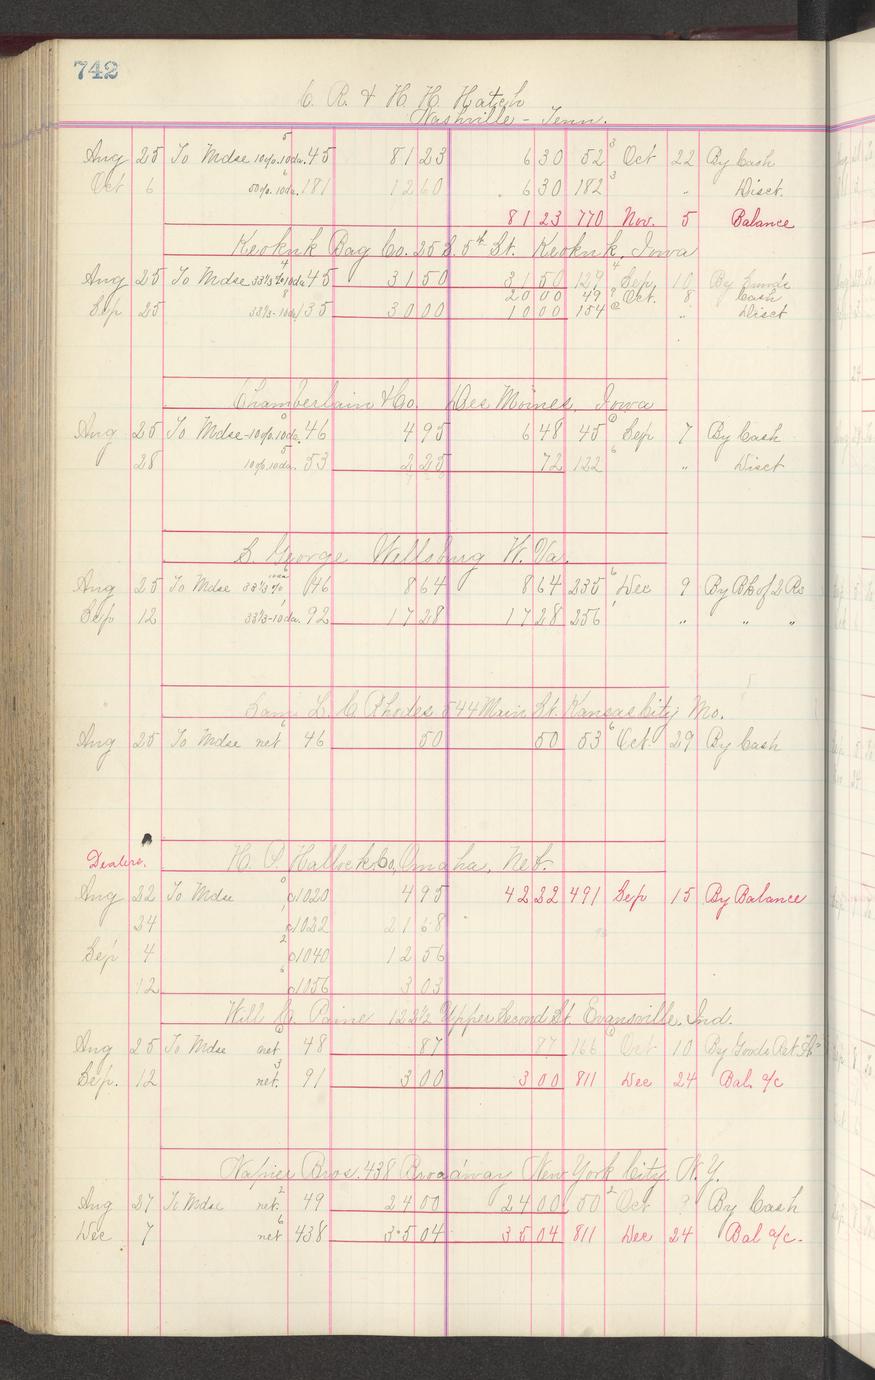 742
C. R. & H. H. Hatch
Nashville - Tenn.
Aug 25 To Mdse 10%.10da. 5 45 81 23 6 30 52 3 Oct 22 By Cash
Oct 6 50%.10da. 6 181 12 60 6 30 182 3 " Disct.
81 23 770 Nov. 5 Balance
Keokuk Bag Co. 25 S. 5th St. Keokuk, Iowa
Aug 25 To Mdse 33 1/3 % 10da 4 45 31 50 31 50 129 4 Sep. 10 By
Sep 25 33 1/3 - 10da 8 135 30 00 20 00 49 Oct. 8 Cash
10 00 154 " Disct
Chamberlain & Co. Des Moines, Iowa
Aug 25 To Mdse - 10%.10da. 0 46 4 95 6 48 45 6 Sep 7 By Cash
28 10%.10da. 5 53 2 25 72 122 6 " Disct
S. George Wellsburg W. Va.
Aug 25 To Mdse 33 1/3 % 10da 6 46 8 64 8 64 235 6 Dec 9 By Bk of 2 Rs
Sep 12 33 1/3 - 10da. 1 92 17 28 17 28 256 1 " " "
Sam L. C Rhodes 544 Main St. Kansas City Mo.
Aug 25 To Mdse net 6 46 50 50 53 6 Oct. 29 By Cash
Dealers.
H. P. Hallock & Co, Omaha, Neb.
Aug 22 To Mdse 0 c1020 4 95 42 22 491 Sep 15 By Balance
24 1 c1022 21 68
Sep 4 2 c1040 12 56
12 6 c1056 3 03
Will H. Paine 123 1/2 Upper Second St. Evansville, Ind.
Aug 25 To Mdse net 6 48 87 87 166 6 Oct 10 By Goods Ret.
Sep. 12 net. 3 91 3 00 3 00 811 Dec 24 Bal. a/c
Napier Bros. 438 Broadway New York City N.Y.
Aug 27 To Mdse net. 2 49 24 00 24 00 50 2 Oct 9 By Cash
Dec 7 net 6 438 35 04 35 04 811 Dec 24 Bal a/c.